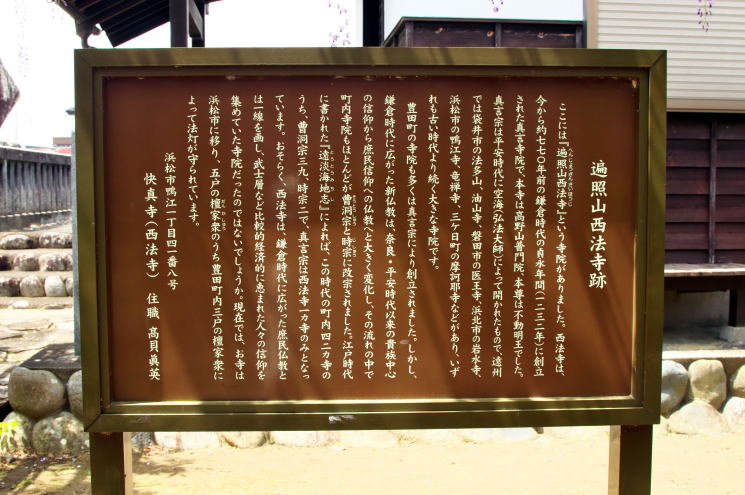 遍照山西法寺跡
ここには『遍照山西法寺』という寺院がありました。西法寺は、
今から約七七〇年前の鎌倉時代の貞永年間(一二三二年)に創立
された真言寺院で、本寺は高野山普門院、本尊は不動明王でした。
真言宗は平安時代に空海(弘法大師)によって開かれたもので、遠州
では袋井市の法多山、油山寺、磐田市の医王寺、浜北市の岩水寺、
浜松市の鴨江寺、竜禅寺、三ケ日町の摩訶耶寺などがあり、いず
れも古い時代より続く大きな寺院です。
豊田町の寺院も多くは真言宗により創立されました。しかし、
鎌倉時代に広がった新仏教は、奈良・平安時代以来の貴族中心
の信仰から庶民信仰への仏教へと大きく変化し、その流れの中で
町内寺院もほとんどが曹洞宗と時宗に改宗されました。江戸時代
に書かれた『遠淡海地志』によれば、この時代の町内四二カ寺の
うち、曹洞宗三九、時宗二で、真言宗は西法寺一カ寺のみとなっ
ています。おそらく、西法寺は、鎌倉時代に広がった庶民仏教と
は一線を画し、武士層など比較的経済的に恵まれた人々の信仰を
集めていた寺院だったのではないでしょうか。現在では、お寺は
浜松市に移り、五戸の檀家衆のうち豊田町内三戸の檀家衆に
よって法灯が守られています。
浜松市鴨江一丁目四一番八号
快真寺(西法寺) 住職 高貝眞英